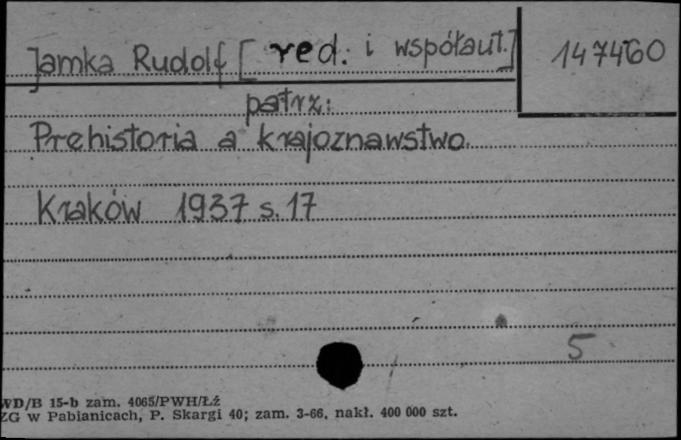 Jamka Rudolf [red. i współaut.]
147460
patrz:
Prehistoria a krajoznawstwo.
Kraków 1937 s. 17
5
WD/B 15-b zam. 4065/PWH/Łź
ZG w Pabianicach, P. Skargi 40; zam. 3-66, nakł. 400 000 szt.